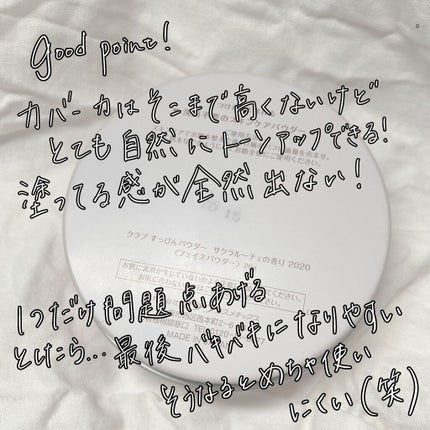 Good point!
カバー力はそこまで高くないけど
とても自然にトーンアップできる!
塗ってる感が全然出ない!
クラブ すっぴんパウダー サクラルーチェの香り 2020
〈フェイスパウダー〉
1つだけ問題点あげる
とけたら...最後バキバキになりやすい
そうなるとめちゃ使い
にくい(笑)